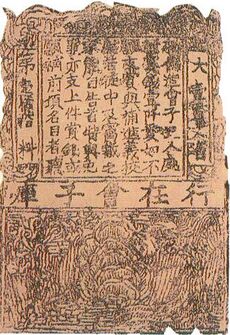 大
敕偽造會子犯人處
斬賞錢壹阡貫如不
願支賞與補進義校
尉若徒中及窩藏之
家能自告首特與免
罪亦支上件賞錢或
願補前項名目者聽
第料
行在會子庫